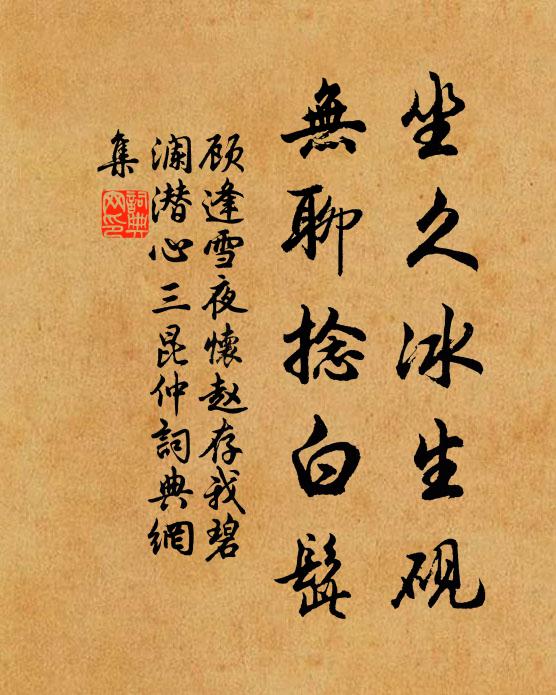 坐久冰生砚
無聊捻白髭
顾逢雪夜懷赵存我碧
澜潜心三昆仲詞典網
集
詞典
网印